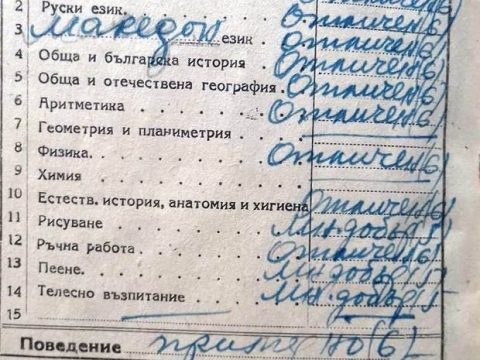 2 Руски език. Отличен(6)
3 Македон език Отличен(6)
4 Обща и българска история Отличен(6)
5 Обща и отечествена география Отличен(6)
6 Аритметика Отличен(6)
7 Геометрия и планиметрия
8 Физика. Отличен(6)
9 Химия
10 Естеств. история, анатомия и хигиена Отличен(6)
11 Рисуване Мн. добър(5)
12 Ръчна работа Отличен(6)
13 Пеене. Мн. добър(5)
14 Телесно възпитание Мн. добър 5
15
Поведение (6)